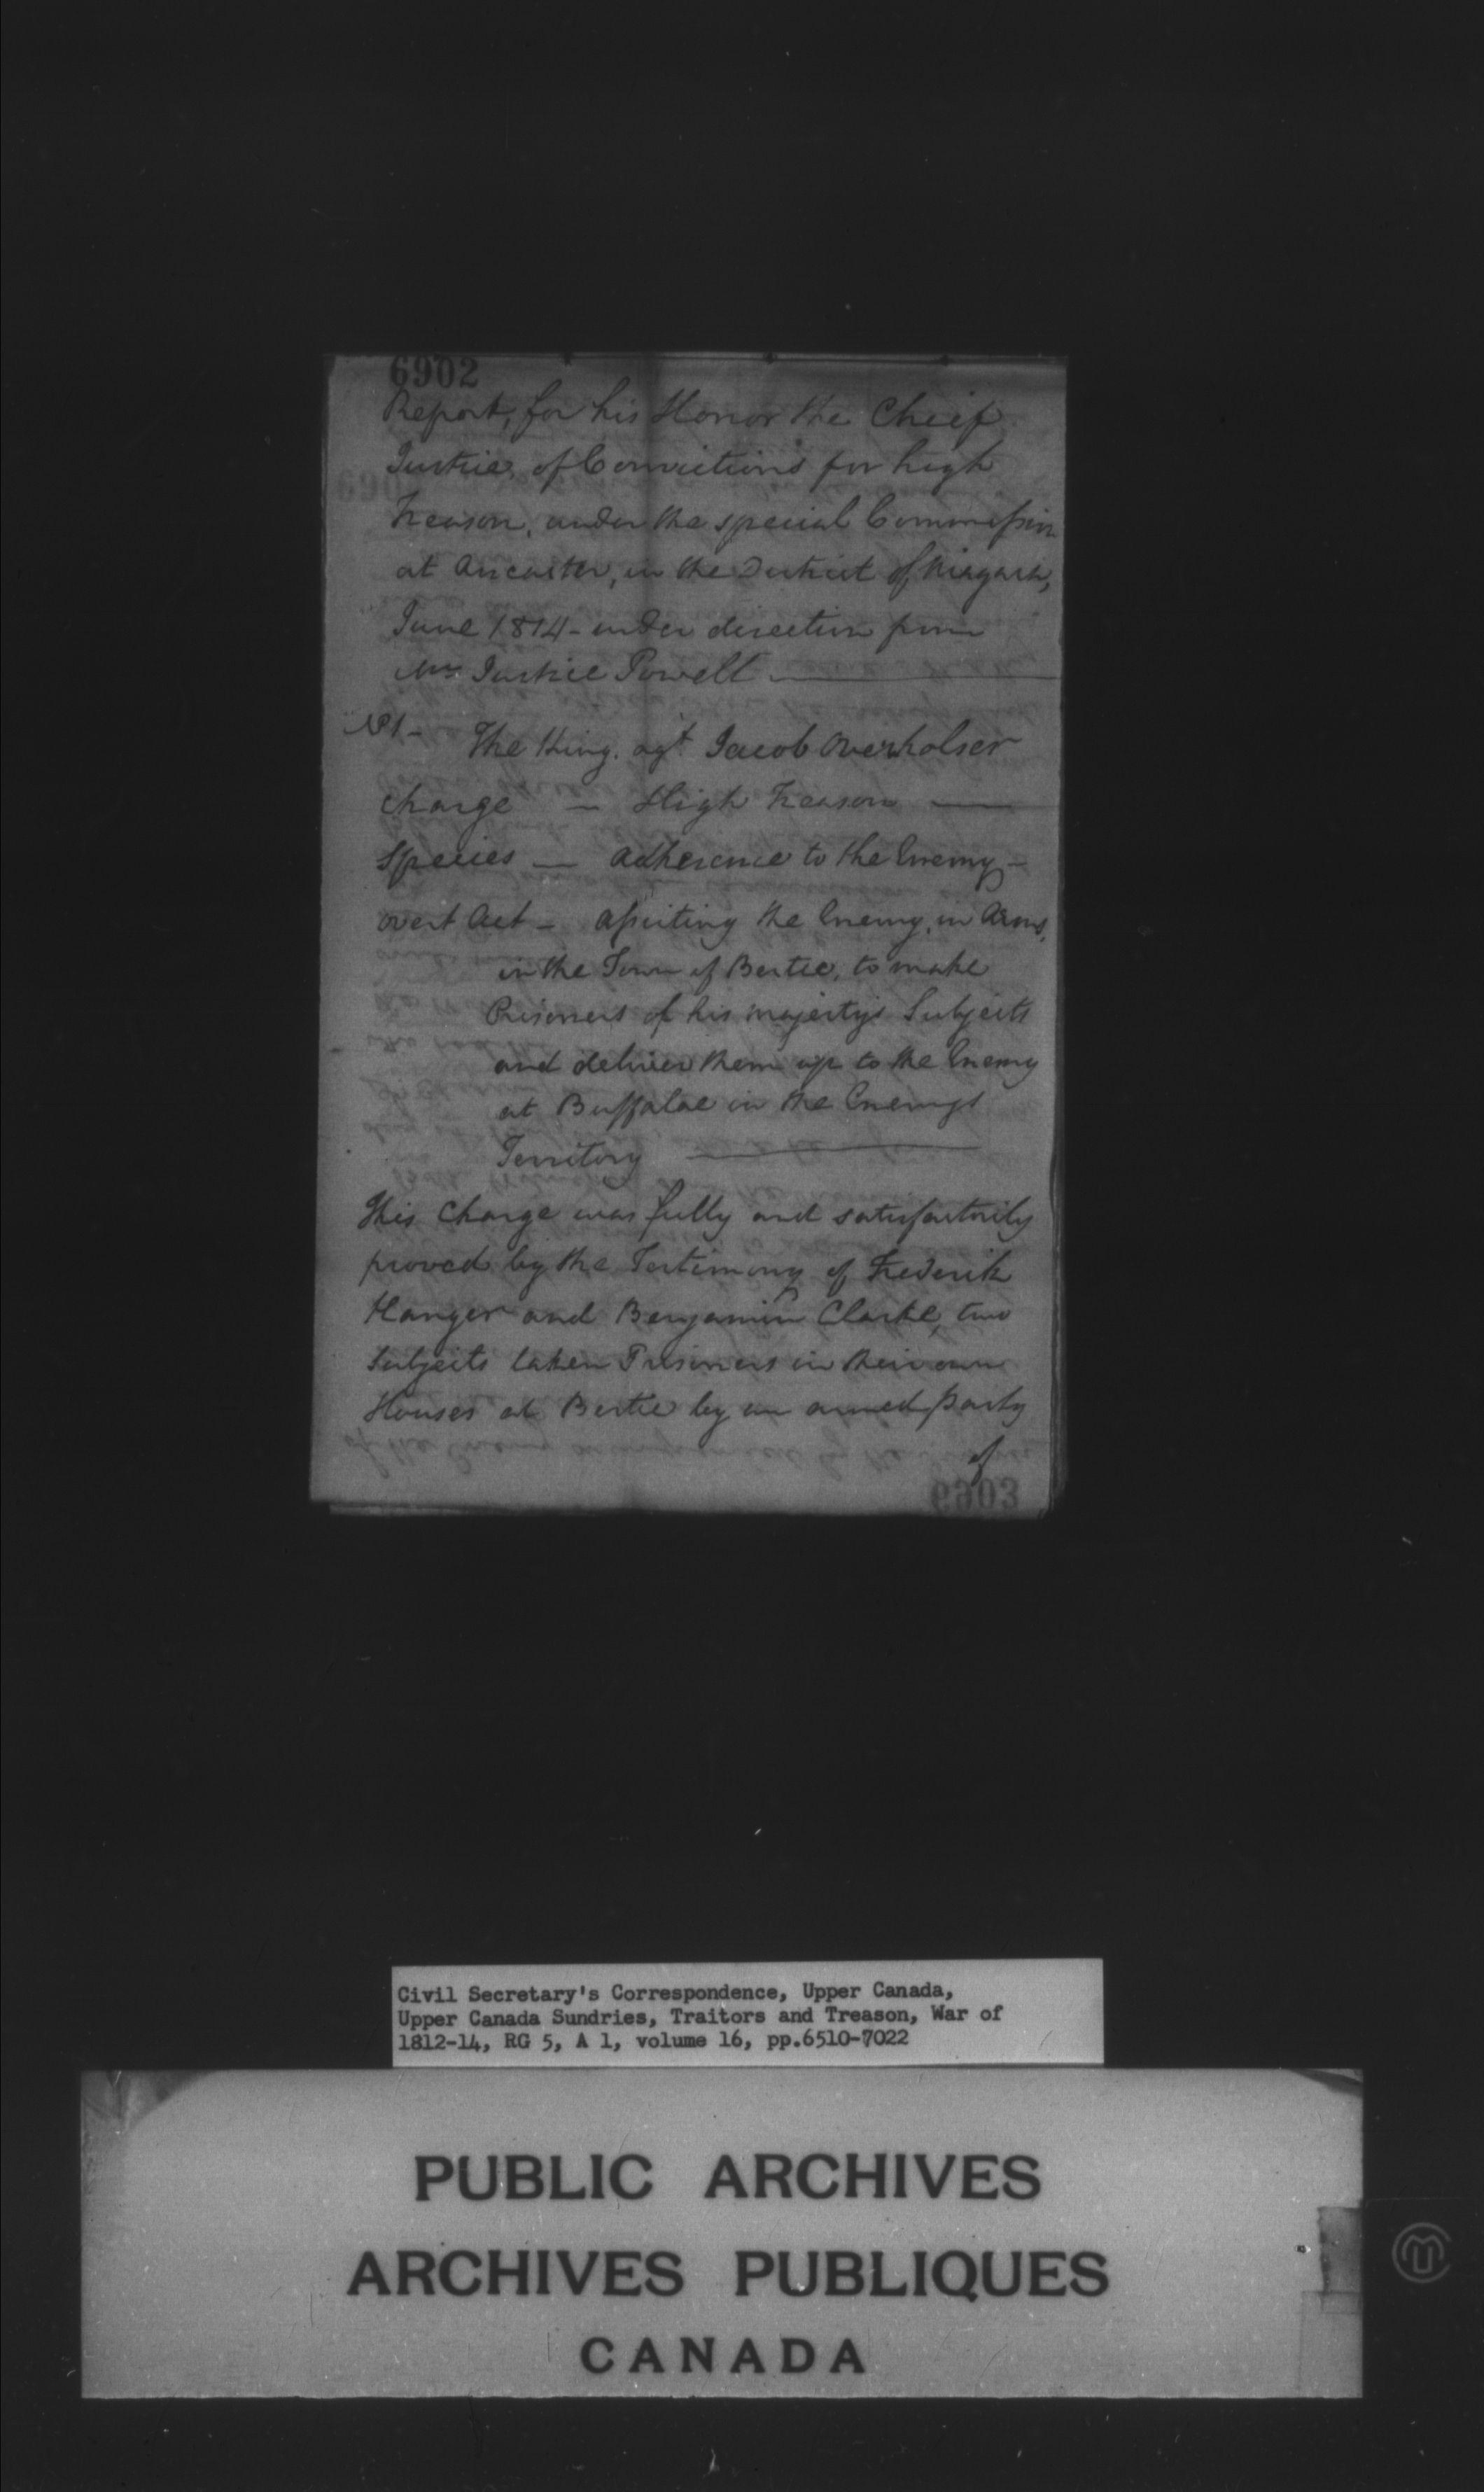 6902
Report, for his Honor the Chief
Justice, of Convictions for high
Treason, under the special Commission
at Ancaster, in the District of Niagara,
June 1814 - under direction from
Mr. Justice Powell —
No 1 - The King. agt Jacob Overholser
Charge — High Treason —
Species — adherence to the Enemy —
overt Act — assisting the Enemy, in Arms,
in the Town of Bertie, to make
Prisoners of his majesty's Subjects
and deliver them up to the Enemy
at Buffaloe in the Enemys
Territory —
This Charge was fully and satisfactorily
proved by the Testimony of Frederik
Hanger and Benjamin Clarke, two
Subjects taken Prisoners in their own
Houses at Bertie by an armed party
of
6903
Civil Secretary's Correspondence, Upper Canada,
Upper Canada Sundries, Traitors and Treason, War of
1812-14, RG 5, A 1, volume 16, pp.6510-7022
PUBLIC ARCHIVES
ARCHIVES PUBLIQUES
CANADA